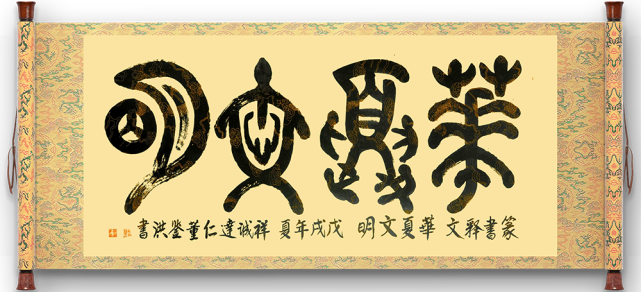 華夏文明
篆書釋文 華夏文明 戊戌年夏 祥誠達仁董鉴洪書